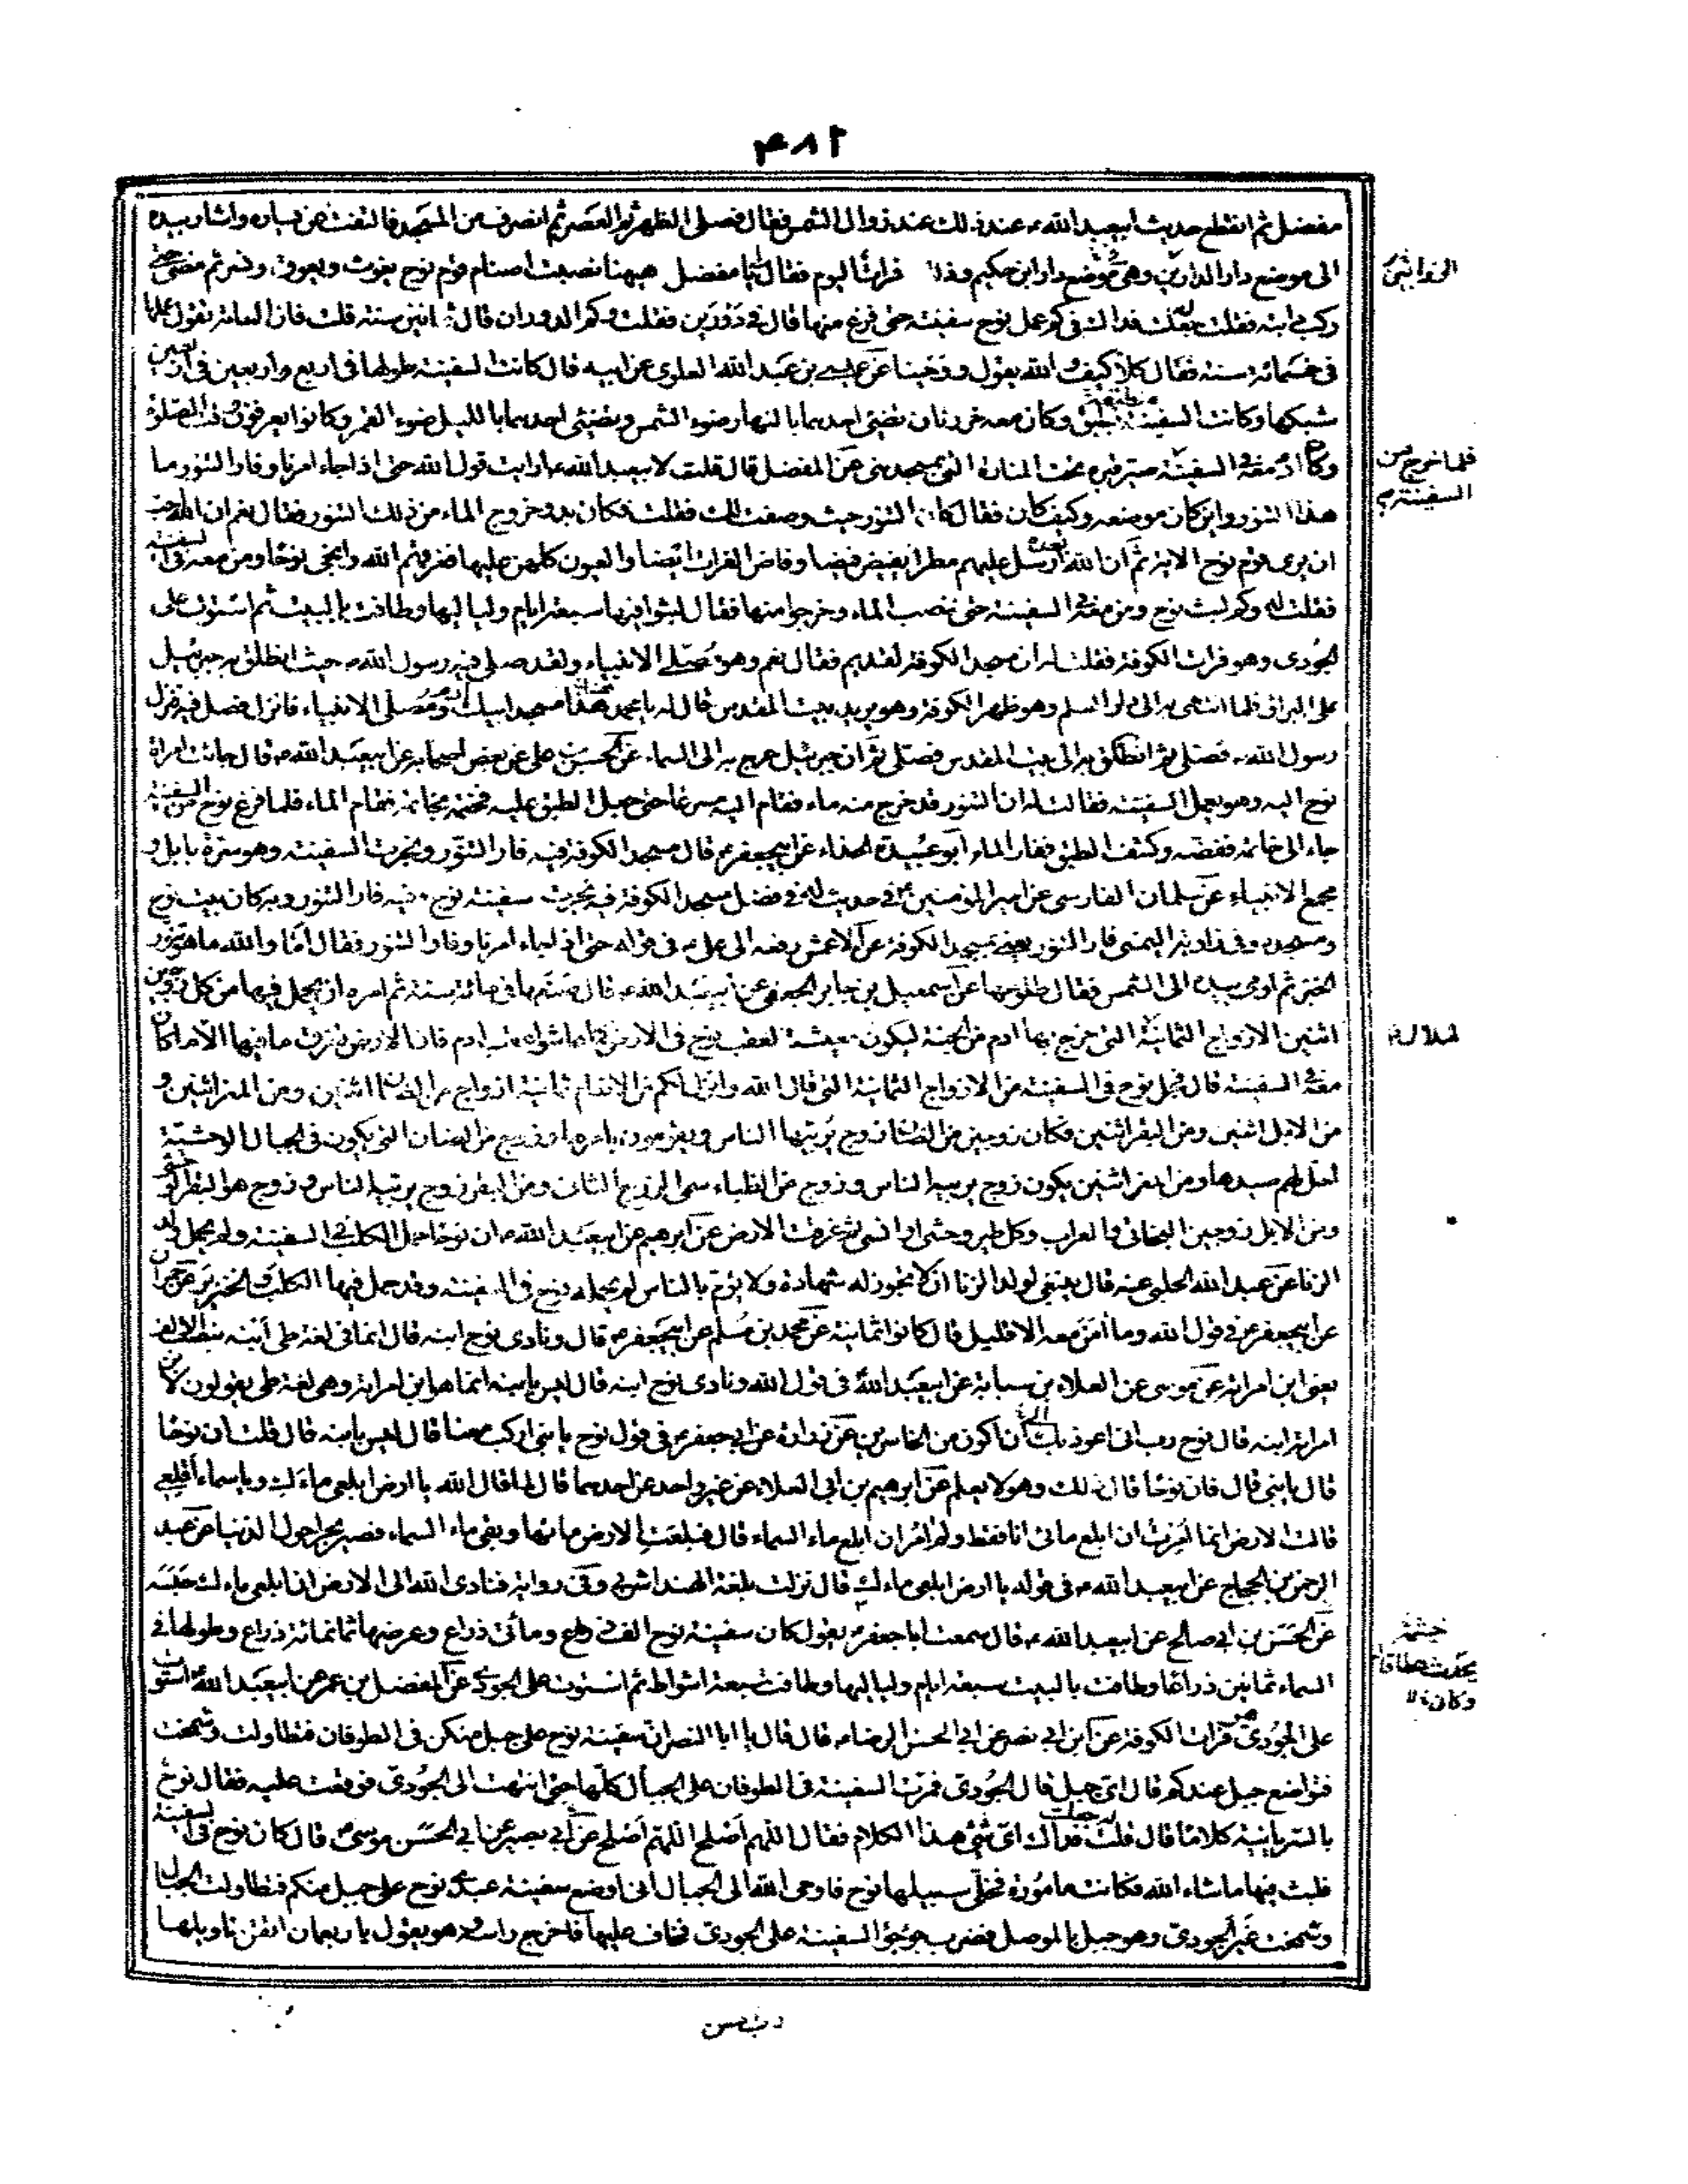 ٤٨٢
مفضل ثم انقطع حديث ابيعبد الله عند ذلك عند زوال الشمس فقال فصلى الظهر ثم العصر ثم انصرف من المسجد فالتفت عن يساره واشار بيده
الى موضع دار الدارين وهى موضع دار ابن حكيم وذلك فرات اليوم فقال لى يا مفضل هيهنا نصبت اصنام قوم نوح يغوث ويعوق ونسر ثم مضى حتى
ركب دابته فقلت له جعلت فداك فى كم عمل نوح سفينته حتى فرغ منها قال فى دورين فقلت وكم الدوران قال ثمانين سنة قلت فان العامة تقول عملها
فى خمسمائة سنة فقال كلا كيف والله يقول ووحينا عن عيسى بن عبد الله العلوى عن ابيه قال كانت السفينة طولها فى اربع واربعين فى اربعين
سمكها وكانت السفينة مطبقة بطبق وكان معه خرزتان تضيئ احديهما بالنهار ضوء الشمس وتضيئ احديهما بالليل ضوء القمر وكانوا يعرفون وقت الصلوة
وكان ادم معه فى السفينة صير قبره تحت المنارة التى بمسجد منى عن المفضل قال قلت لابيعبد الله ارايت قول الله حتى اذا جاء امرنا وفار التنور ما
هذا التنور واين كان موضعه وكيف كان فقال كان التنور حيث وصفت لك فقلت فكان بدو خروج الماء من ذلك التنور فقال نعم ان الله احب
ان يرى قوم نوح الاية ثم ان الله بعده ارسل عليهم مطرا يفيض فيضا وفاض الفرات ايضا والعيون كلهن عليها فغرقهم الله وانجى نوحا ومن معه فى السفينة
فقلت له وكم لبث نوح ومن معه فى السفينة حتى نضب الماء وخرجوا منها فقال لبثوا فيها سبعة ايام ولياليها وطافت بالبيت ثم استوت على
الجودى وهو فرات الكوفة فقلت له ان مسجد الكوفة لقديم فقال نعم وهو مصلى الانبياء ولقد صلى فيه رسول الله حيث انطلق به جبرئيل
على البراق فلما انتهى به الى دار السلم وهو ظهر الكوفة وهو يريد بيت المقدس قال له يا محمد هذا مسجد ابيك ادم ومصلى الانبياء فانزل فصل فيه فنزل
رسول الله فصلى ثم انطلق به الى بيت المقدس فصلى ثم ان جبرئيل عرج به الى السماء عن الحسن بن على عن بعض اصحابه عن ابيعبد الله قال جائت امراة
نوح اليه وهو يعمل السفينة فقالت له ان التنور قد خرج منه ماء فقام اليه مسرعا حتى جعل الطبق عليه فختمه بخاتمه فقام الماء فلما فرغ نوح من السفينة
جاء الى خاتمه ففضه وكشف الطبق ففار الماء ابو عبيدة الحذاء عن ابيجعفر قال مسجد الكوفة فيه فار التنور ونجرت السفينة وهو سرة بابل و
مجمع الانبياء عن سلمان الفارسى عن امير المؤمنين فى حديث له فى فضل مسجد الكوفة فيه نجرت سفينة نوح وفيه فار التنور وبه كان بيت نوح
ومسجده وفى زاويته اليمنى فار التنور يعنى بمسجد الكوفة عن الاعمش رفعه الى على فى قوله حتى اذا جاء امرنا وفار التنور فقال اما والله ما هو تنور
الخبز ثم اومى بيده الى الشمس فقال طلوعها عن اسمعيل بن جابر الجعفى عن ابيعبد الله قال صنعها فى مائة سنة ثم امره ان يحمل فيها من كل زوجين
اثنين الازواج الثمانية التى خرج بها ادم من الجنة ليكون معيشة لعقب نوح فى الارض كما عاش ولد ادم فان الارض تغرق ما فيها الا ما كان
معه فى السفينة قال فحمل نوح فى السفينة من الازواج الثمانية التى قال الله وانزل لكم من الانعام ثمانية ازواج من الضان اثنين ومن المعز اثنين و
من الابل اثنين ومن البقر اثنين فكان زوجين من الضان زوج يربيها الناس ويقومون بامرها وزوج من الضان التى يكون فى الجبال الوحشية
احل لهم صيدها ومن المعز اثنين يكون زوج يربيه الناس وزوج من الظباء سمى الزوج الثانى ومن البقر زوج يربيه الناس وزوج هو البقر الوحشى
ومن الابل زوجين البخاتى والعراب وكل طير وحشى او انسى ثم غرقت الارض عن ابرهيم عن ابيعبد الله ان نوحا حمل الكلب فى السفينة ولم يحمل ولد
الزنا عن عبد الله الحلبى عنه قال ينبغى لولد الزنا ان لا تجوز له شهادة ولا يؤم بالناس لم يحمله نوح فى السفينة وقد حمل فيها الكلب والخنزير عن حمران
عن ابيجعفر فى قول الله وما امن معه الا قليل قال كانوا ثمانية عن محمد بن مسلم عن ابيجعفر قال ونادى نوح ابنه قال انما فى لغة طى ابنه بنصب الالف
يعنى ابن امراته عن موسى عن العلاء بن سيابة عن ابيعبد الله فى قول الله ونادى نوح ابنه قال ليس بابنه انما هو ابن امراته وهى لغة طى يقولون لابن
امراته ابنه قال نوح رب انى اعوذ بك ان اكون من الخاسرين عن زرارة عن ابيجعفر فى قول نوح يا بنى اركب معنا قال ليس بابنه قال قلت ان نوحا
قال يا بنى قال فان نوحا قال ذلك وهو لا يعلم عن ابرهيم بن ابى العلاء عن غير واحد عن احدهما قال لما قال الله يا ارض ابلعى ماءك ويا سماء اقلعى
قالت الارض انما امرت ان ابلع مائى انا فقط ولم اومر ان ابلع ماء السماء قال فبلعت الارض مائها وبقى ماء السماء فصير بحرا حول الدنيا عن عبد
الرحمن بن الحجاج عن ابيعبد الله فى قوله يا ارض ابلعى ماءك قال نزلت بلغة الهند اشربى وفى رواية فنادى الله الى الارض ان ابلعى ماءك حبشية
عن الحسن بن ابى صالح عن ابيعبد الله قال سمعت ابا جعفر يقول كان سفينة نوح الف ذراع ومأتى ذراع وعرضها ثمانمائة ذراع وطولها فى
السماء ثمانين ذراعا وطافت بالبيت سبعة ايام ولياليها وطافت سبعة اشواط ثم استوت على الجودى عن المفضل بن عمر عن ابيعبد الله استوت
على الجودى هو فرات الكوفة عن ابن ابى نصر عن ابى الحسن الرضا قال قال يا ابا النصر ان سفينة نوح على جبل منكن فى الطوفان فتطاولت وشمخت
فتواضع جبل عندكم قال اى جبل قال الجودى فمرت السفينة فى الطوفان على الجبال كلها حتى انتهت الى الجودى فوقعت عليه فقال نوح
بالسريانية كلاما قال قلت جعلت فداك اى شئ هذا الكلام فقال اللهم اصلح اللهم اصلح عن ابى بصير عن ابى الحسن موسى قال كان نوح فى السفينة
فلبث فيها ما شاء الله فكانت مامورة فخلى سبيلها نوح فاوحى الله الى الجبال انى اوضع سفينة عبدى نوح على جبل منكم فتطاولت الجبال
وشمخت غير الجودى وهو جبل بالموصل فضرب جؤجؤ السفينة على الجودى فخاف عليها فاخرج راسه وهو يقول يا ريعمان اتقن تاويلها
فلما خرج من
السفينة
وكان